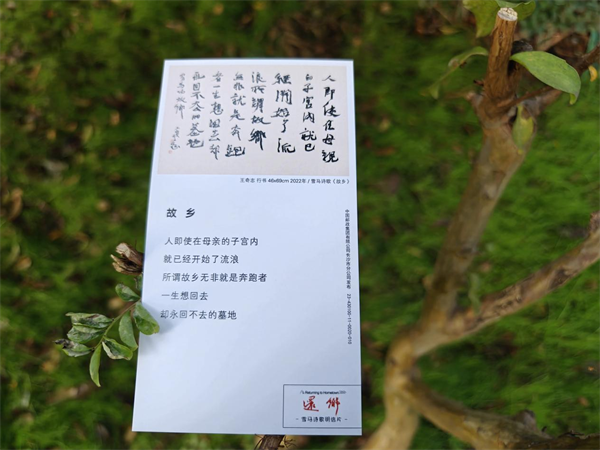 人即使在母親
的子宫内就已
經開始了流
浪所謂故鄉
無非就是奔跑
者一生想回去却
永回不去的墓地
雪马诗故鄉
王勇圣 行书 46x69cm 2022年 / 雪马诗歌《故乡》
故 乡
人即使在母亲的子宫内
就已经开始了流浪
所谓故乡无非就是奔跑者
一生想回去
却永回不去的墓地
中国邮政集团有限公司长沙市分公司发布
Returning to Hometown
還鄉
- 雪马诗歌明信片 -